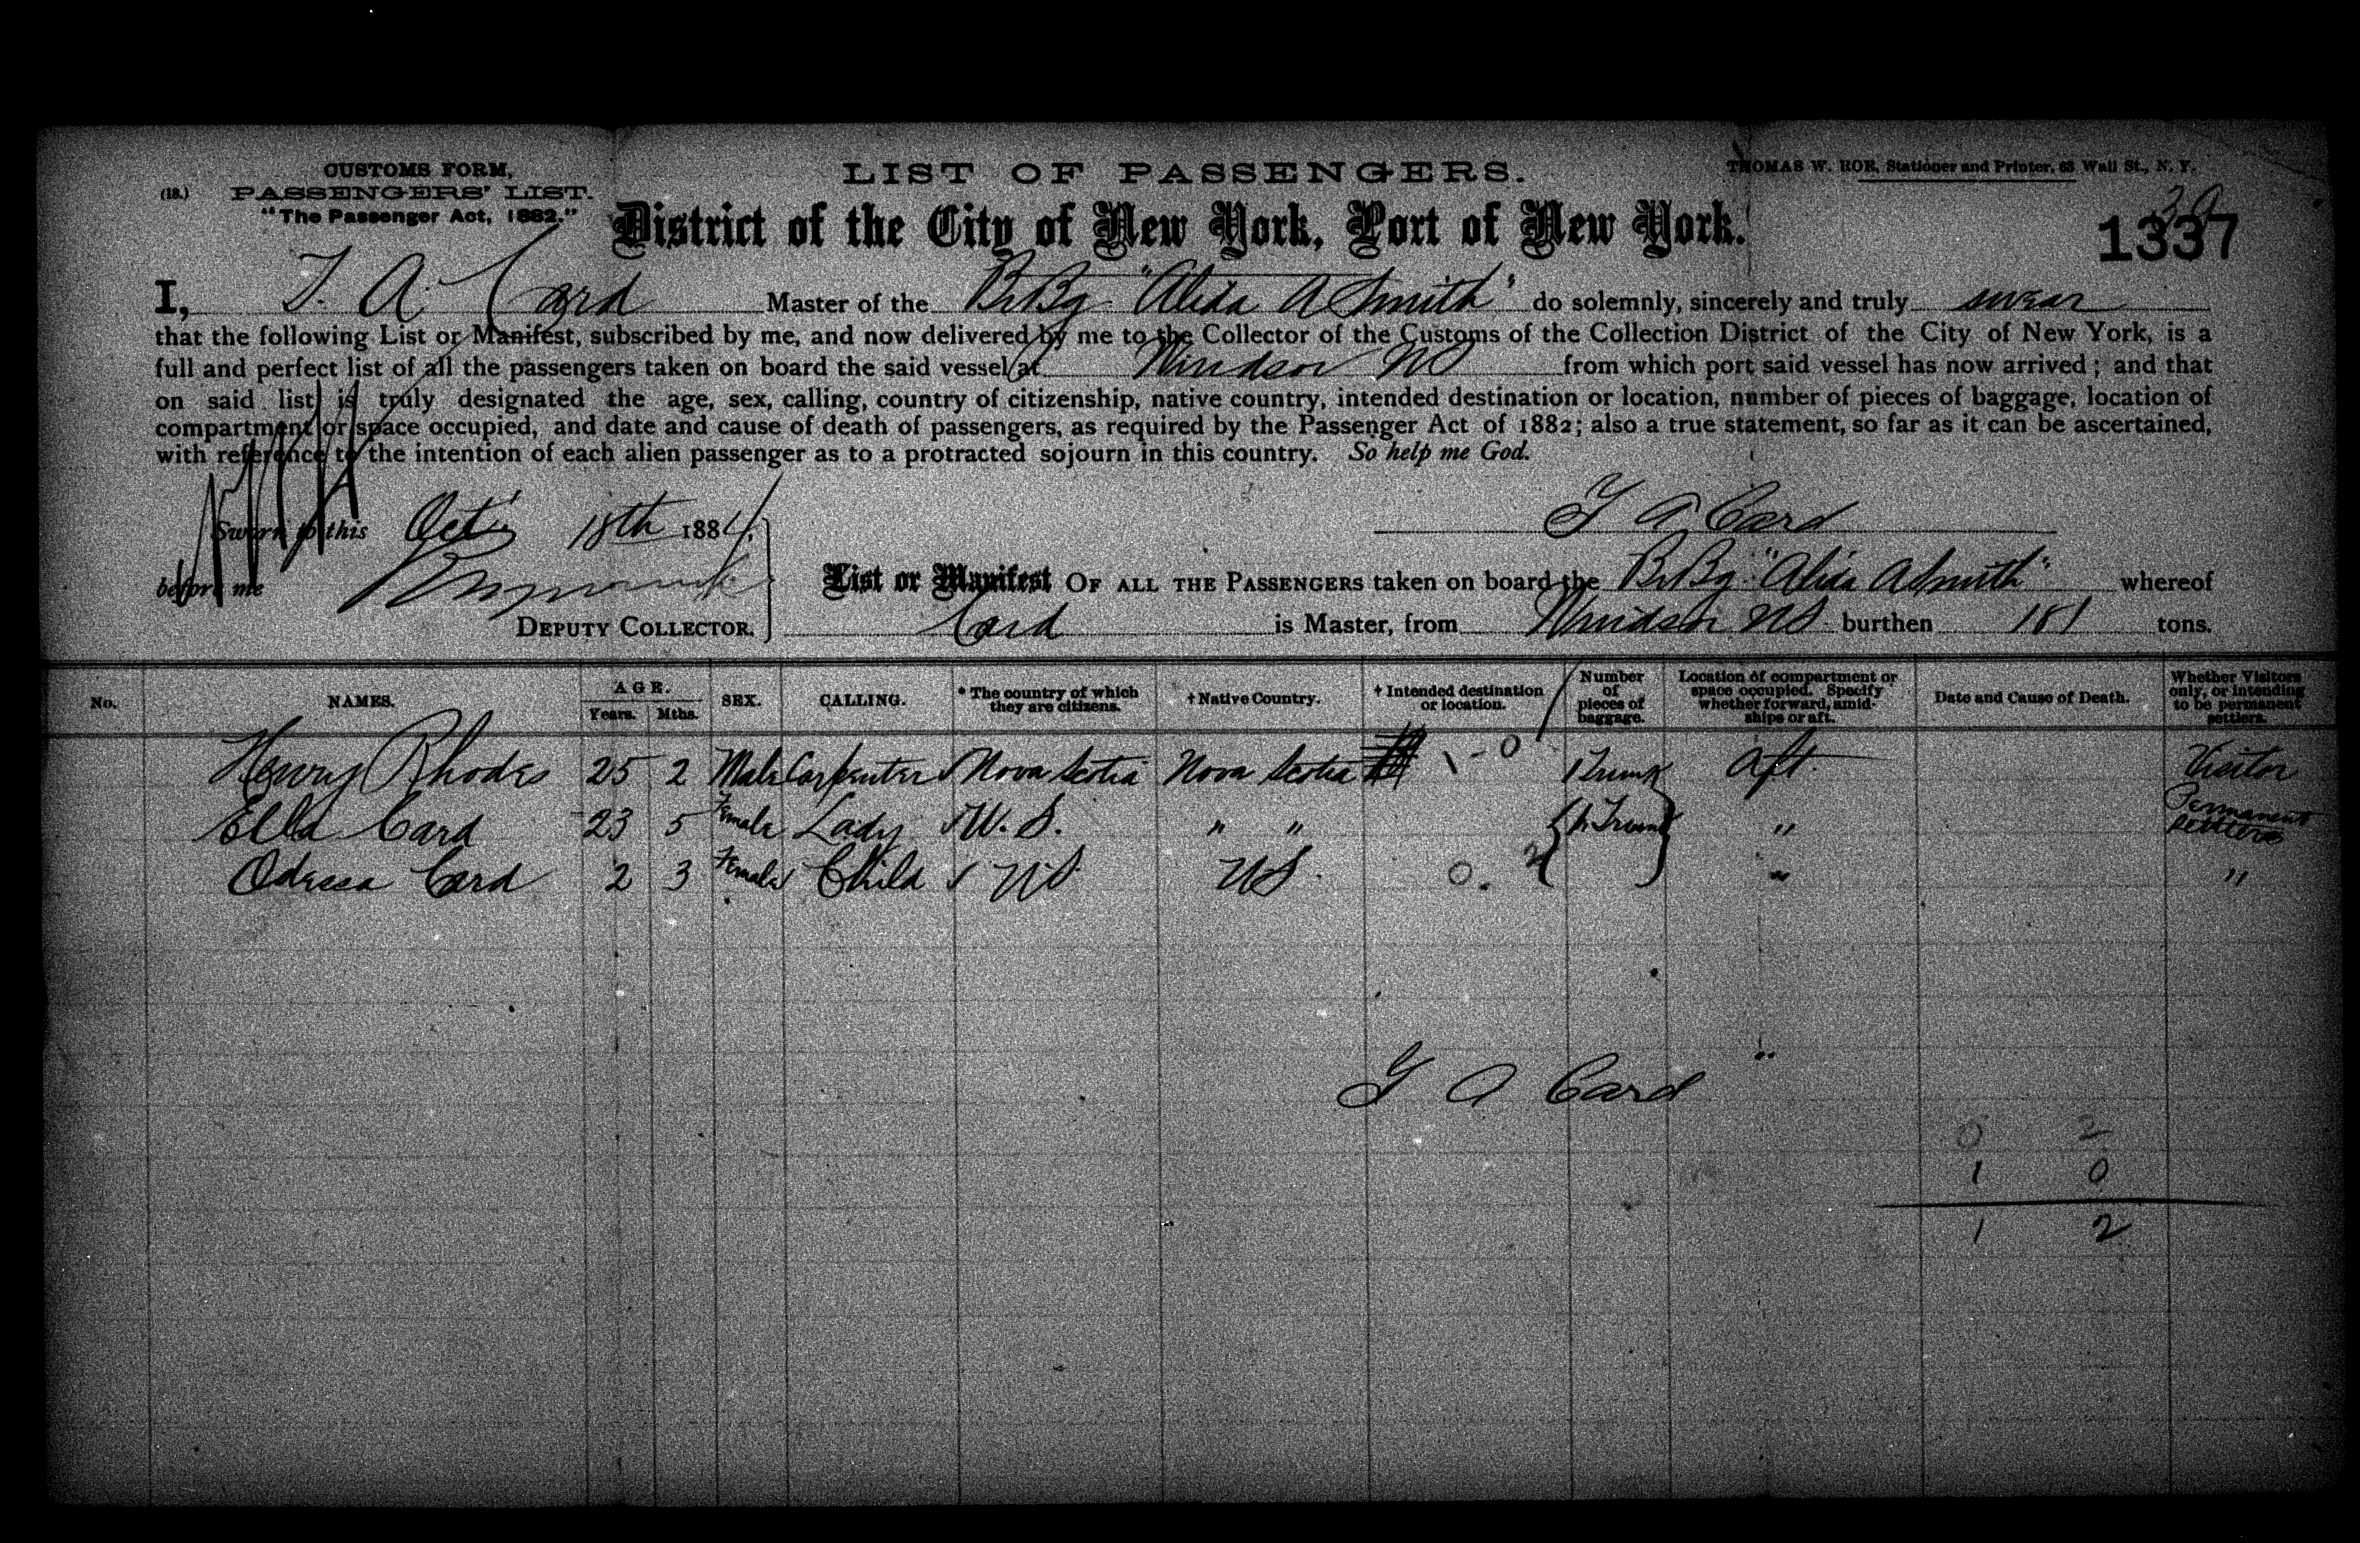 CUSTOMS FORM,
(18.) PASSENGERS' LIST.
"The Passenger Act, 1882."
LIST OF PASSENGERS.
THOMAS W. ROE, Stationer and Printer, 63 Wall St., N. Y.
District of the City of New York, Port of New York.
1337
I, T. A. Card Master of the Br Bg "Alida A Smith" do solemnly, sincerely and truly swear
that the following List or Manifest, subscribed by me, and now delivered by me to the Collector of the Customs of the Collection District of the City of New York, is a
full and perfect list of all the passengers taken on board the said vessel at Windsor NS from which port said vessel has now arrived; and that
on said list is truly designated the age, sex, calling, country of citizenship, native country, intended destination or location, number of pieces of baggage, location of
compartment or space occupied, and date and cause of death of passengers, as required by the Passenger Act of 1882; also a true statement, so far as it can be ascertained,
with reference to the intention of each alien passenger as to a protracted sojourn in this country. So help me God.
Sworn to this Oct 18th 1884.
A Card
before me
DEPUTY COLLECTOR.
List or Manifest OF ALL THE PASSENGERS taken on board the Br Bg "Alida A Smith" whereof
Card is Master, from Windsor NS burthen 181 tons.
No. NAMES. AGE. Years. Mths. SEX. CALLING. * The country of which they are citizens. † Native Country. † Intended destination or location. Number of pieces of baggage. Location of compartment or space occupied. Specify whether forward, amidships or aft. Date and Cause of Death. Whether Visitors only, or intending to be permanent settlers.
Henry Rhodes 25 2 Male Carpenter Nova Scotia Nova Scotia 1-0 1 Trunk Aft. Visitor
Ella Card 23 5 Female Lady N. S. " " 1 Trunk " Permanent settlers
Odessa Card 2 3 Female Child NS NS 0. 2 " "
A Card
0 2
1 0
1 2